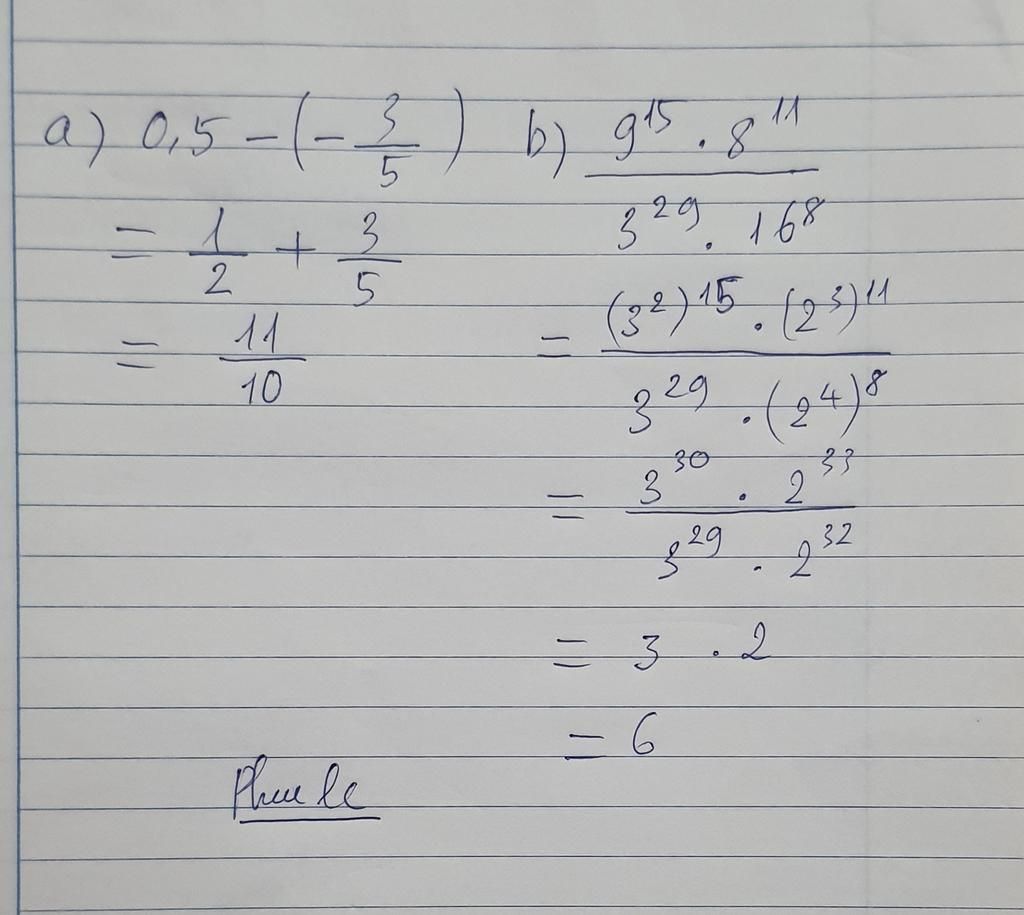 a) 0,5 - (- 3/5)
= 1/2 + 3/5
= 11/10
b) 9^15 . 8^11 / 3^29 . 16^8
= (3^2)^15 . (2^3)^11 / 3^29 . (2^4)^8
= 3^30 . 2^33 / 3^29 . 2^32
= 3 . 2
= 6